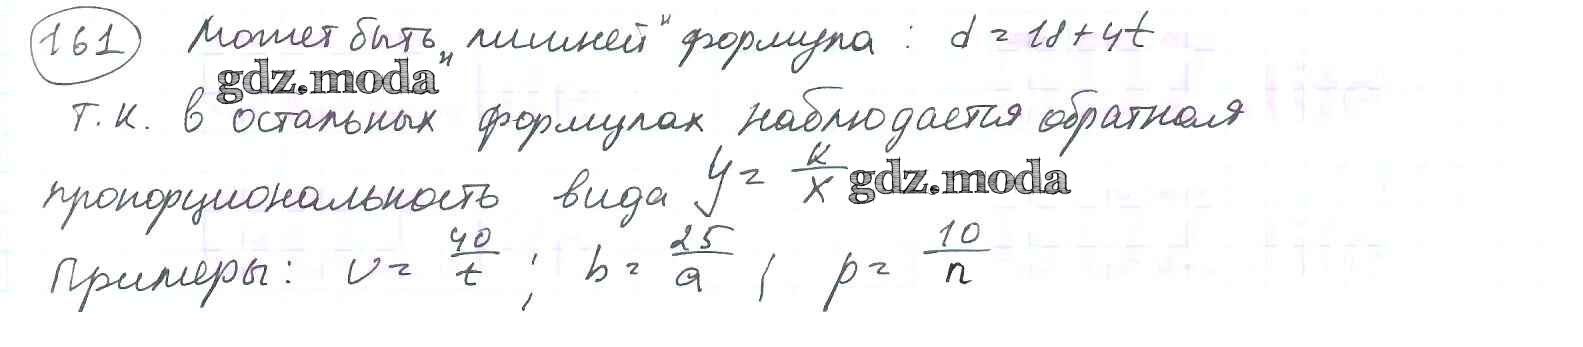 161 Может быть „лишней" формула: d = 18 + 4t
gdz.moda
т.к. в остальных формулах наблюдается обратная
пропорциональность вида y = к/x gdz.moda
Примеры: v = 40/t ; b = 25/a ; p = 10/n